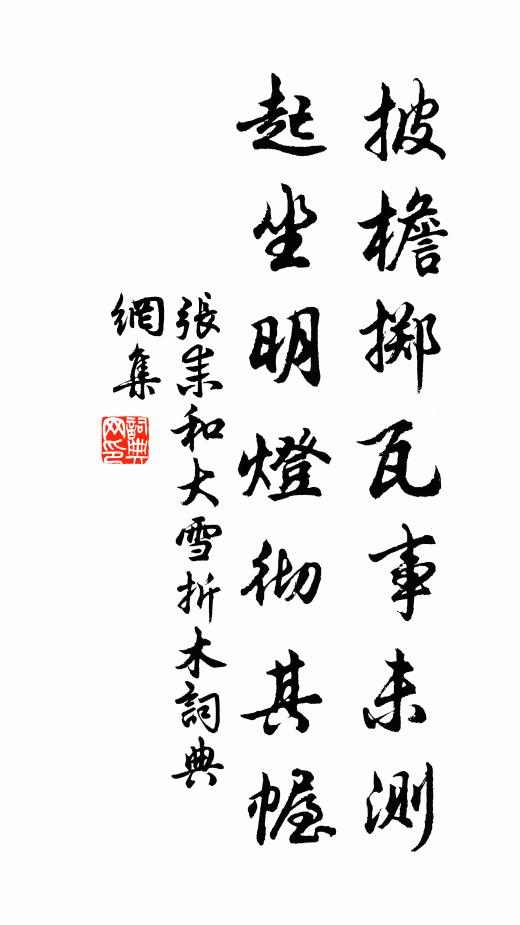 披檐擲瓦事未測
起坐明燈徹其幄
張耒和大雪折木詞典
網集
詞典
网印